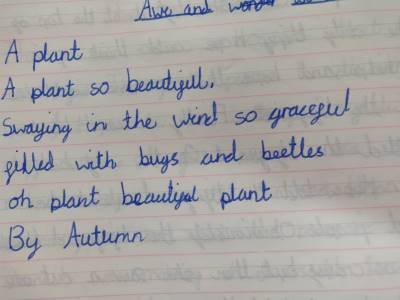 Awe and wonder
A plant
A plant so beautiful.
Swaying in the wind so graceful
filled with bugs and beetles
oh plant beautiful plant
By Autumn